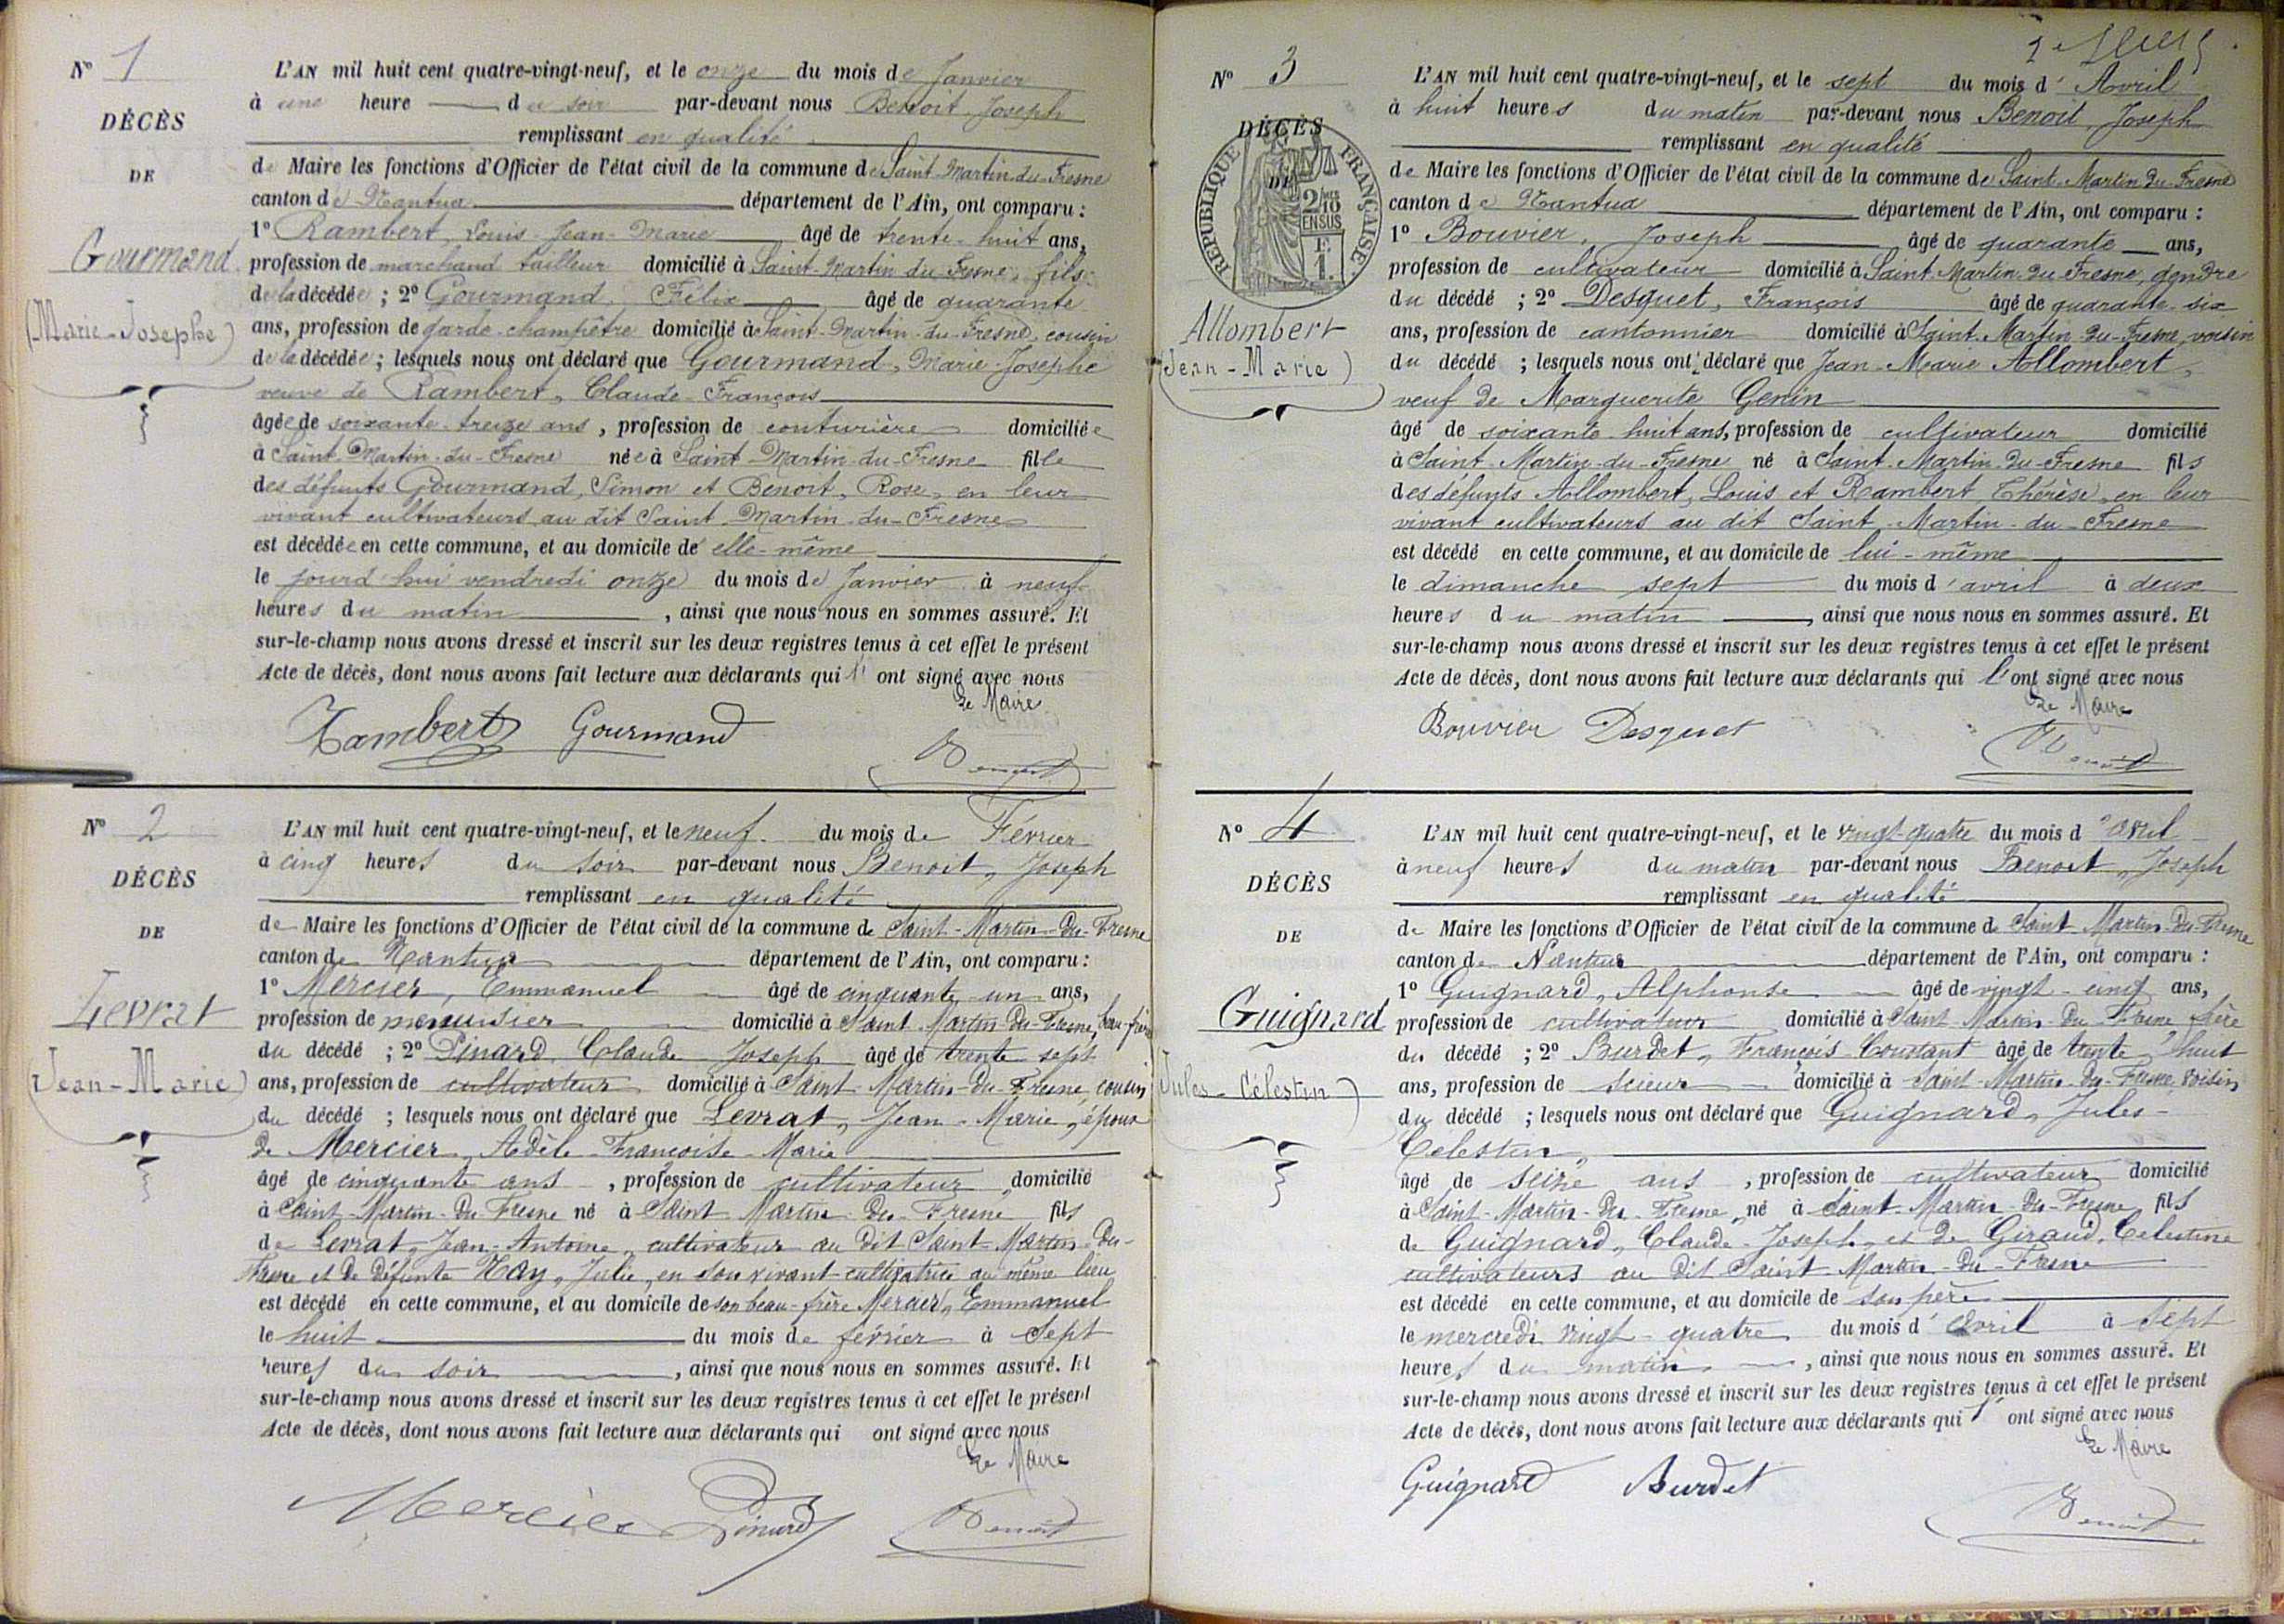 N° 1
DÉCÈS
DE
Gourmand
(Marie-Josephe)
L'AN mil huit cent quatre-vingt-neuf, et le onze du mois de Janvier
à une heure du soir par-devant nous Benoit, Joseph
remplissant en qualité
de Maire les fonctions d'Officier de l'état civil de la commune de Saint-Martin-du-Fresne
canton de Nantua département de l'Ain, ont comparu :
1° Rambert, Louis-Jean-Marie âgé de trente-huit ans,
profession de marchand tailleur domicilié à Saint-Martin du Fresne, fils
de la décédée ; 2° Gourmand, Félix âgé de quarante
ans, profession de garde-champêtre domicilié à Saint-Martin-du-Fresne, cousin
de la décédée ; lesquels nous ont déclaré que Gourmand, Marie-Josephe
veuve de Rambert, Claude-François
âgée de soixante-treize ans, profession de couturière domiciliée
à Saint-Martin-du-Fresne née à Saint-Martin-du-Fresne fille
des défunts Gourmand, Simon et Benoit, Rose, en leur
vivant cultivateurs au dit Saint-Martin-du-Fresne
est décédée en cette commune, et au domicile de elle-même
le jourd'hui vendredi onze du mois de Janvier à neuf
heures du matin, ainsi que nous nous en sommes assuré. Et
sur-le-champ nous avons dressé et inscrit sur les deux registres tenus à cet effet le présent
Acte de décès, dont nous avons fait lecture aux déclarants qui l' ont signé avec nous
Le Maire
Rambert Gourmand
Benoit
N° 2
DÉCÈS
DE
Levrat
(Jean-Marie)
L'AN mil huit cent quatre-vingt-neuf, et le neuf du mois de Février
à cinq heures du soir par-devant nous Benoit, Joseph
remplissant en qualité
de Maire les fonctions d'Officier de l'état civil de la commune de Saint-Martin-Du-Fresne
canton de Nantua département de l'Ain, ont comparu :
1° Mercier, Emmanuel âgé de cinquante-un ans,
profession de menuisier domicilié à Saint-Martin-Du-Fresne, beau-frère
du décédé ; 2° Pinard, Claude Joseph âgé de trente sept
ans, profession de cultivateur domicilié à Saint-Martin-Du-Fresne, cousin
du décédé ; lesquels nous ont déclaré que Levrat, Jean-Marie, époux
de Mercier, Adèle-Françoise-Marie
âgé de cinquante ans, profession de cultivateur, domicilié
à Saint-Martin-Du-Fresne né à Saint Martin-Du-Fresne fils
de Levrat, Jean-Antoine, cultivateur au dit Saint-Martin-Du-
Fresne et de défunte Hay, Julie, en son vivant cultivatrice au même lieu
est décédé en cette commune, et au domicile de son beau-frère Mercier, Emmanuel
le huit du mois de février à sept
heures du soir, ainsi que nous nous en sommes assuré. Et
sur-le-champ nous avons dressé et inscrit sur les deux registres tenus à cet effet le présent
Acte de décès, dont nous avons fait lecture aux déclarants qui ont signé avec nous
Le Maire
Mercier Pinard Benoit
N° 3
DÉCÈS
DE
RÉPUBLIQUE FRANÇAISE
2/10 EN SUS
Allombert
(Jean-Marie)
L'AN mil huit cent quatre-vingt-neuf, et le sept du mois d'Avril
à huit heures du matin par-devant nous Benoit, Joseph
remplissant en qualité
de Maire les fonctions d'Officier de l'état civil de la commune de Saint-Martin-Du-Fresne
canton de Nantua département de l'Ain, ont comparu :
1° Bouvier, Joseph âgé de quarante ans,
profession de cultivateur domicilié à Saint-Martin-Du-Fresne, gendre
du décédé ; 2° Desquet, François âgé de quarante-six
ans, profession de cantonnier domicilié à Saint-Martin-Du-Fresne, voisin
du décédé ; lesquels nous ont déclaré que Jean-Marie Allombert,
veuf de Marguerite Genin
âgé de soixante huit ans, profession de cultivateur domicilié
à Saint-Martin-du-Fresne né à Saint-Martin-Du-Fresne fils
des défunts Allombert, Louis et Rambert, Thérèse, en leur
vivant cultivateurs au dit Saint-Martin-du-Fresne
est décédé en cette commune, et au domicile de lui-même
le dimanche sept du mois d'avril à deux
heures du matin, ainsi que nous nous en sommes assuré. Et
sur-le-champ nous avons dressé et inscrit sur les deux registres tenus à cet effet le présent
Acte de décès, dont nous avons fait lecture aux déclarants qui l'ont signé avec nous
Le Maire
Bouvier Desquet
Benoit
N° 4
DÉCÈS
DE
Guignard
(Jules-Célestin)
L'AN mil huit cent quatre-vingt-neuf, et le vingt-quatre du mois d'avril
à neuf heures du matin par-devant nous Benoit, Joseph
remplissant en qualité
de Maire les fonctions d'Officier de l'état civil de la commune de Saint-Martin-Du-Fresne
canton de Nantua département de l'Ain, ont comparu :
1° Guignard, Alphonse âgé de vingt-cinq ans,
profession de cultivateur domicilié à Saint-Martin-Du-Fresne frère
du décédé ; 2° Burdet, François-Constant âgé de trente-huit
ans, profession de scieur domicilié à Saint-Martin-Du-Fresne, voisin
du décédé ; lesquels nous ont déclaré que Guignard, Jules-
Celestin,
âgé de seize ans, profession de cultivateur domicilié
à Saint-Martin-Du-Fresne, né à Saint-Martin-Du-Fresne fils
de Guignard, Claude-Joseph, et de Giraud, Celestine
cultivateurs au dit Saint-Martin-Du-Fresne
est décédé en cette commune, et au domicile de son père
le mercredi vingt-quatre du mois d'avril à sept
heures du matin, ainsi que nous nous en sommes assuré. Et
sur-le-champ nous avons dressé et inscrit sur les deux registres tenus à cet effet le présent
Acte de décès, dont nous avons fait lecture aux déclarants qui l' ont signé avec nous
Le Maire
Guignard Burdet
Benoit